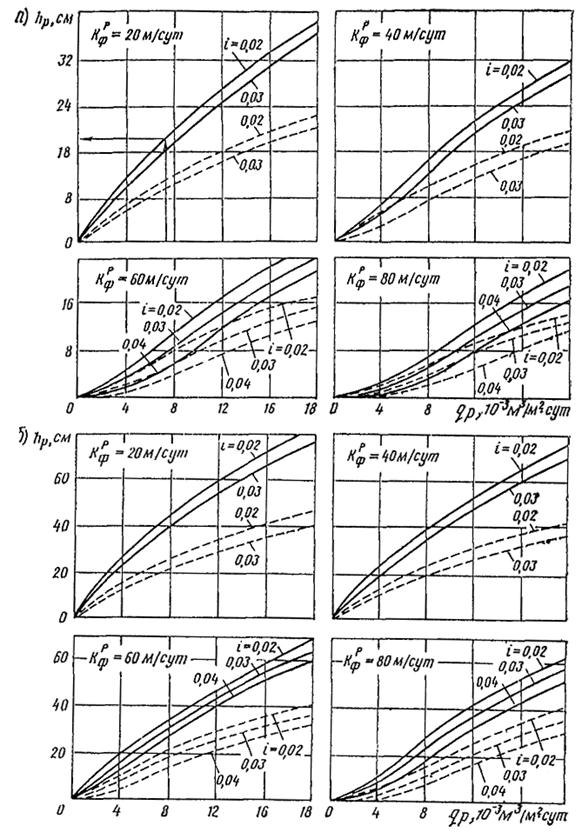 а) hр, см
Kфᴾ = 20 м/сут
i=0,02
0,03
0,02
0,03
32
24
18
8
0
0 4 8 12
Kфᴾ = 40 м/сут
i=0,02
0,03
0,02
0,03
0 4 8 12
Kфᴾ = 60 м/сут
i=0,02
0,03
0,04
i=0,02
0,03
0,04
16
8
0 4 8 12 18
Kфᴾ = 80 м/сут
i=0,02
0,03
0,04
i=0,02
0,03
0,04
0 4 8 qр, 10⁻³м³/м²сут
б) hр, см
Kфᴾ = 20 м/сут
i=0,02
0,03
0,02
0,03
60
40
20
0
0 4 8 12 16
Kфᴾ = 40 м/сут
i=0,02
0,03
0,02
0,03
0 4 8 12
Kфᴾ = 60 м/сут
i=0,02
0,03
0,04
i=0,02
0,03
0,04
60
40
20
0 4 8 12 16 18
Kфᴾ = 80 м/сут
i=0,02
0,03
0,04
i=0,02
0,03
0,04
0 4 8 qр, 10⁻³м³/м²сут